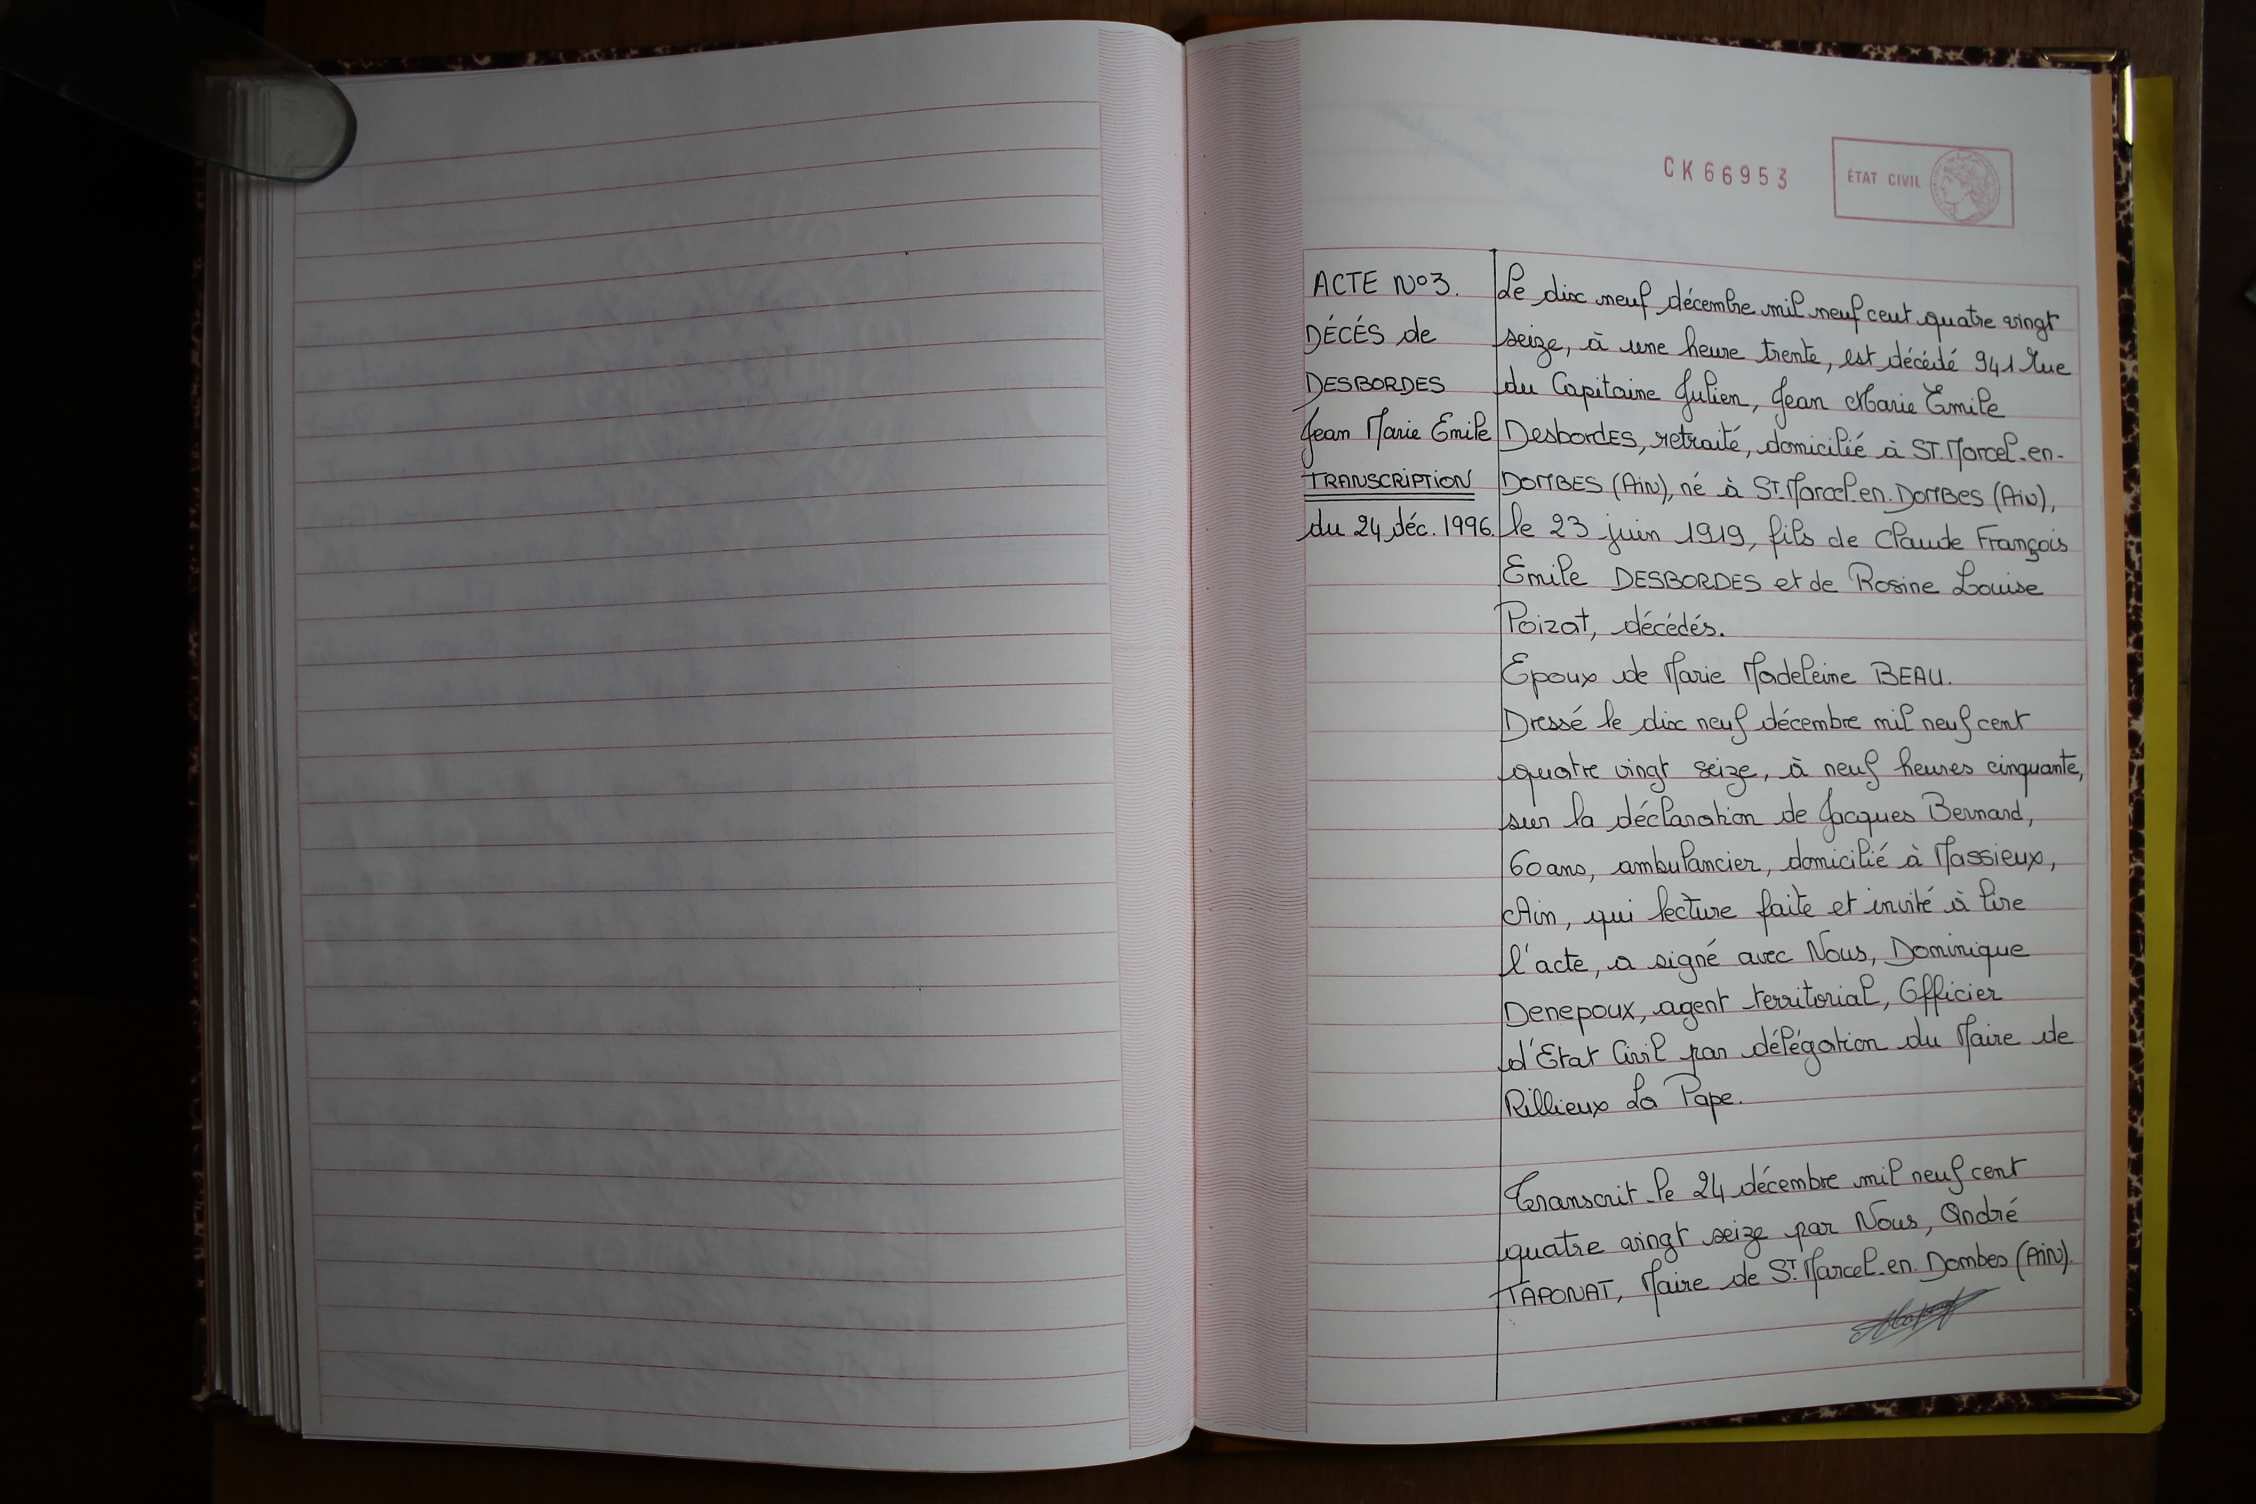 CK66953
ÉTAT CIVIL
ACTE No3.
DÉCÉS de
DESBORDES
Jean Marie Emile
TRANSCRIPTION
du 24 déc. 1996.
Le dix neuf décembre mil neuf cent quatre vingt
seize, à une heure trente, est décédé 941 Rue
du Capitaine Julien, Jean Marie Emile
Desbordes, retraité, domicilié à ST. Marcel-en-
DOMBES (AiN), né à ST. Marcel.en.DOMBES (AiN),
le 23 juin 1919, fils de Claude François
Emile DESBORDES et de Rosine Louise
Poizat, décédés.
Epoux de Marie Madeleine BEAU.
Dressé le dix neuf décembre mil neuf cent
quatre vingt seize, à neuf heures cinquante,
sur la déclaration de Jacques Bernard,
60 ans, ambulancier, domicilié à Massieux,
Ain, qui lecture faite et invité à lire
l'acte, a signé avec Nous, Dominique
Denepoux, agent territorial, Officier
d'Etat Civil par délégation du Maire de
Rillieux La Pape.
Transcrit le 24 décembre mil neuf cent
quatre vingt seize par Nous, André
TAPONAT, Maire de ST. Marcel.en.Dombes (AiN).